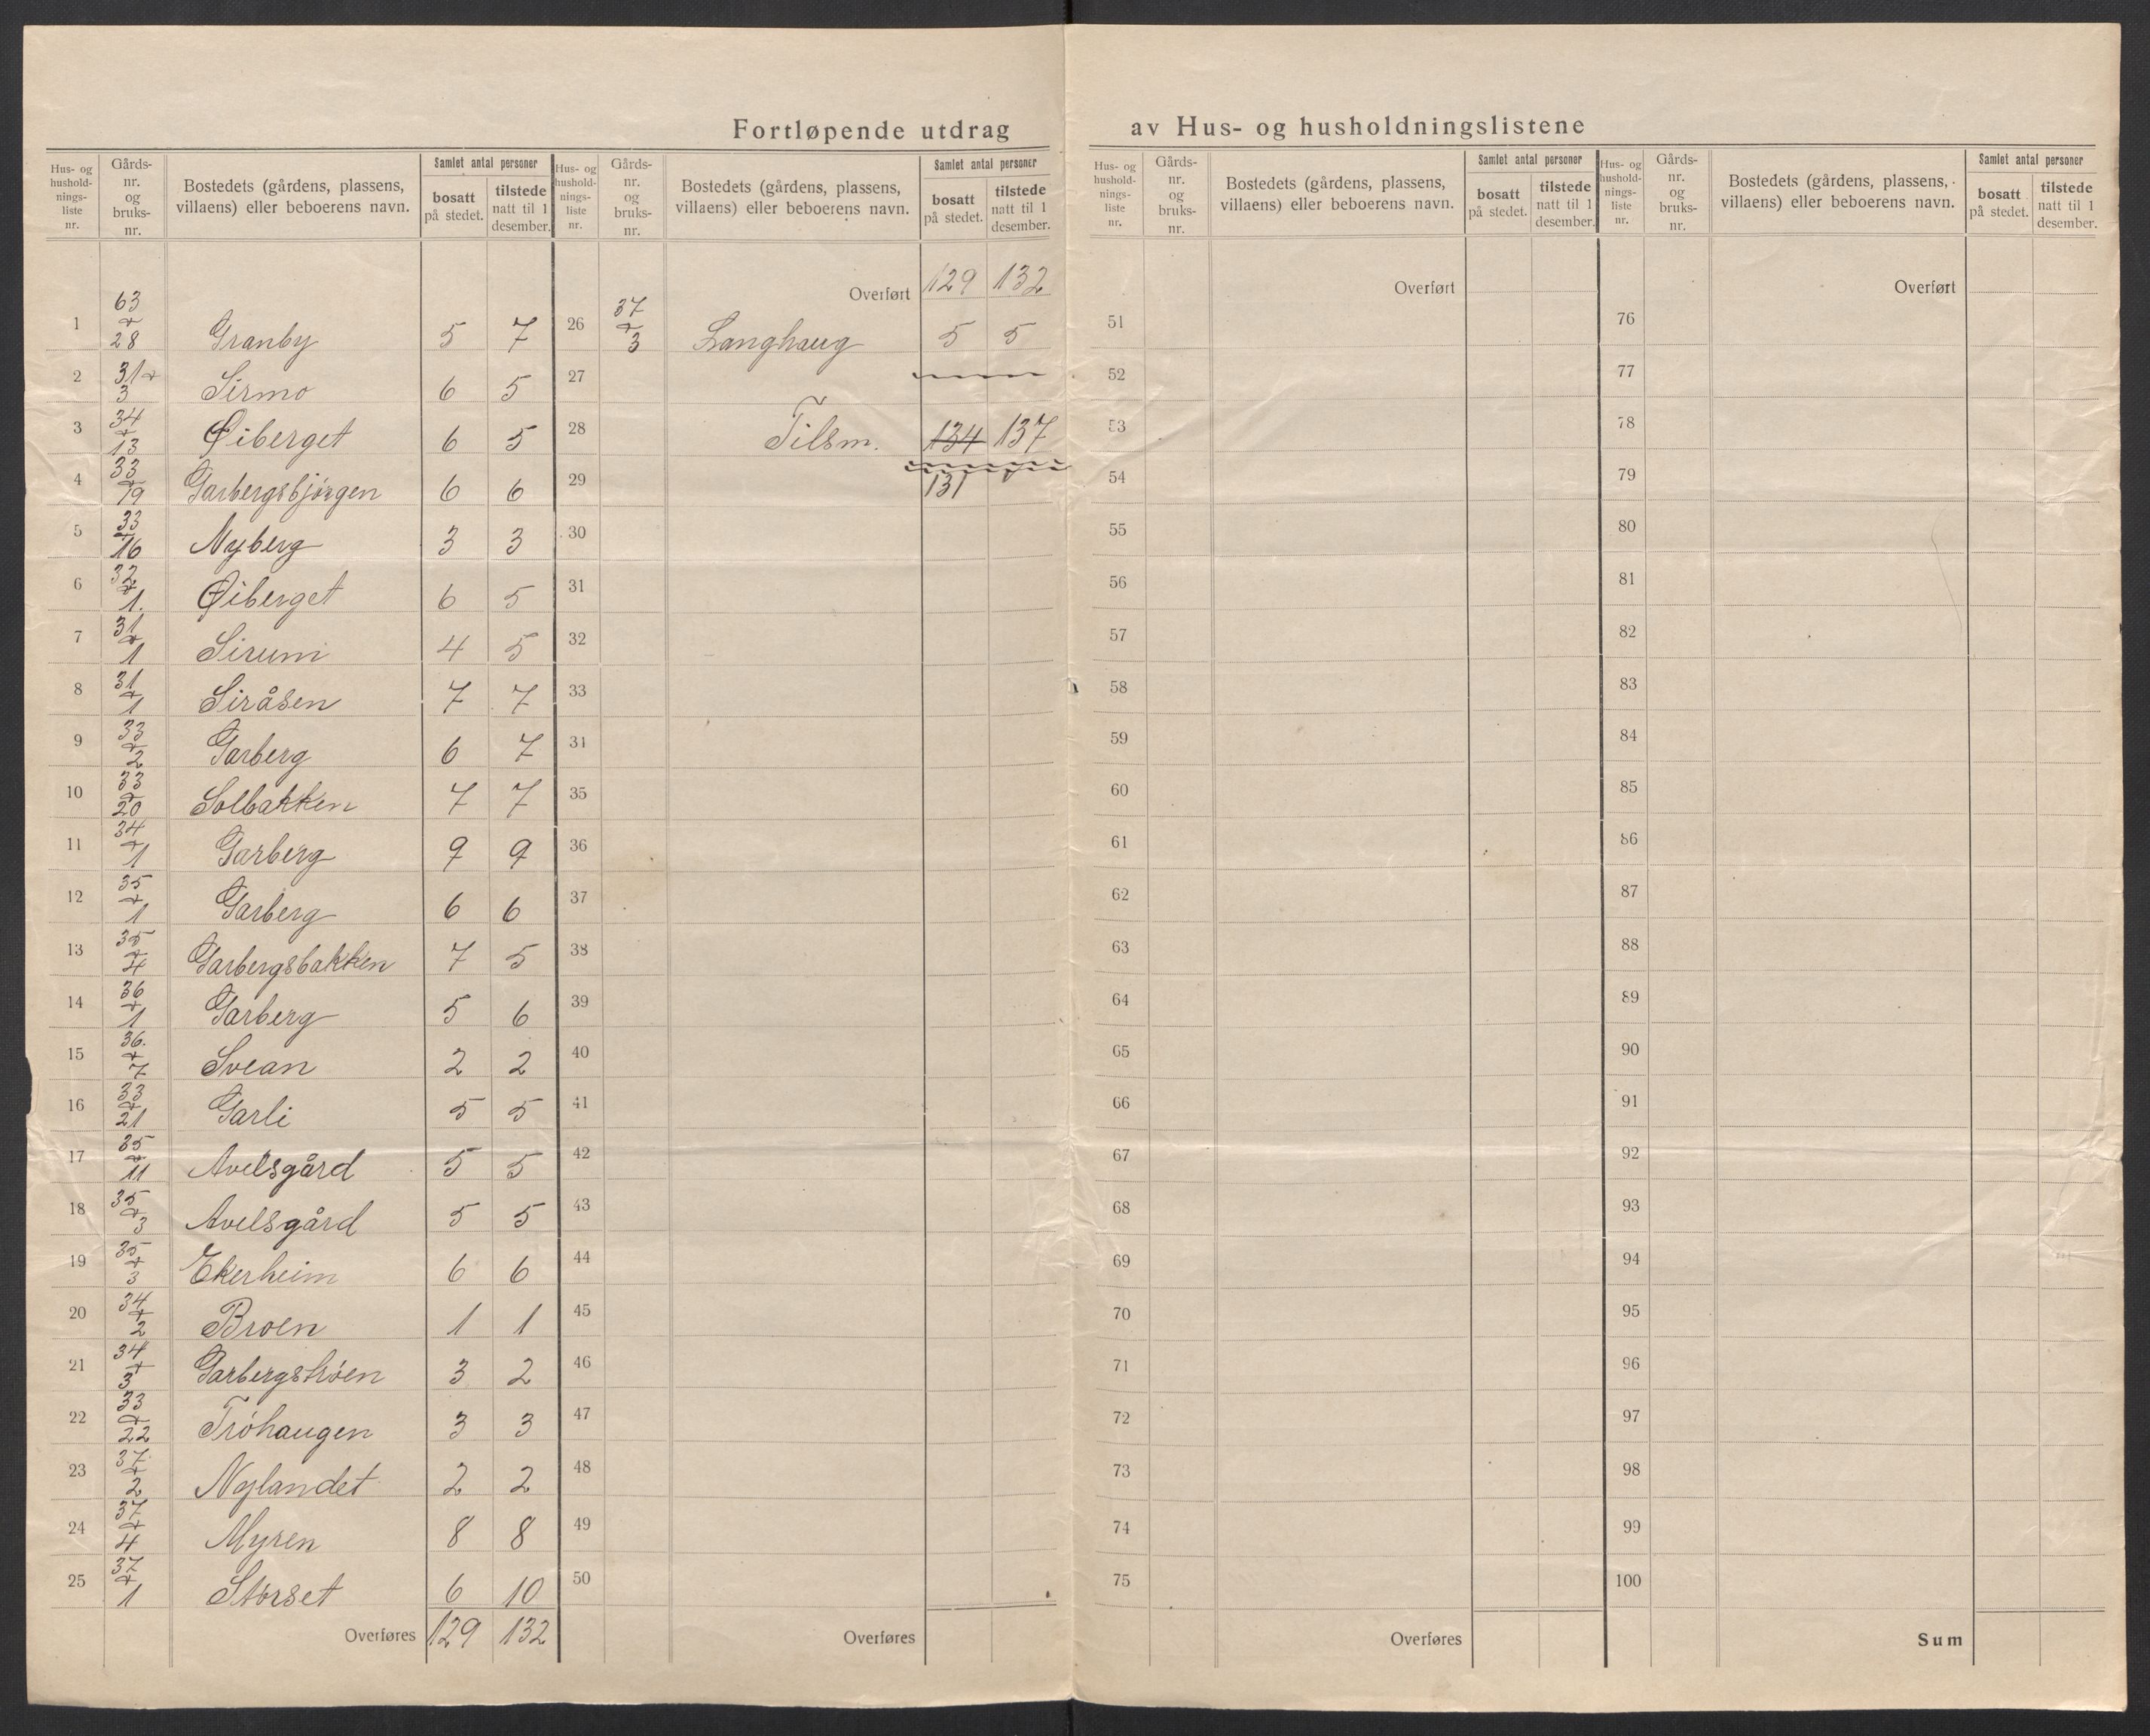 Fortløpende utdrag av Hus- og husholdningslistene
Hus- og hushold-nings-liste nr. | Gårds-nr. og bruks-nr. | Bostedets (gårdens, plassens, villaens) eller beboerens navn. | Samlet antal personer | bosatt på stedet. | tilstede natt til 1 desember.
1 | 63 + 28 | Granby | 5 | 7
2 | 31 + 3 | Sirmo | 6 | 5
3 | 34 + 13 | Øiberget | 6 | 5
4 | 33 + 19 | Garbergsbjørgen | 6 | 6
5 | 33 + 16 | Nyberg | 3 | 3
6 | 32 + 1. | Øiberget | 6 | 5
7 | 31 + 1 | Sirum | 4 | 5
8 | 31 + 1 | Siråsen | 7 | 7
9 | 33 + 2 | Garberg | 6 | 7
10 | 33 + 20 | Solbakken | 7 | 7
11 | 34 + 1 | Garberg | 9 | 9
12 | 35 + 1 | Garberg | 6 | 6
13 | 35 + 4 | Garbergsbakken | 7 | 5
14 | 36 + 1 | Garberg | 5 | 6
15 | 36. + 7 | Svean | 2 | 2
16 | 33 + 21 | Garli | 5 | 5
17 | 35 + 11 | Avelsgård | 5 | 5
18 | 35 + 3 | Avelsgård | 5 | 5
19 | 35 + 3 | Ekerheim | 6 | 6
20 | 34 + 2 | Broen | 1 | 1
21 | 34 + 3 | Garbergstrøen | 3 | 2
22 | 33 + 22 | Trøhaugen | 3 | 3
23 | 37 + 2 | Nylandet | 2 | 2
24 | 37 + 4 | Myren | 8 | 8
25 | 37 + 1 | Storset | 6 | 10
Overføres | 129 | 132
Hus- og hushold-nings-liste nr. | Gårds-nr. og bruks-nr. | Bostedets (gårdens, plassens, villaens) eller beboerens navn. | Samlet antal personer | bosatt på stedet. | tilstede natt til 1 desember.
Overført | 129 | 132
26 | 37 + 3 | Langhaug | 5 | 5
27
28 | Tilsm. | 134 | 137
29 | 131
30
31
32
33
31
35
36
37
38
39
40
41
42
43
44
45
46
47
48
49
50
Overføres
Hus- og hushold-nings-liste nr. | Gårds-nr. og bruks-nr. | Bostedets (gårdens, plassens, villaens) eller beboerens navn. | Samlet antal personer | bosatt på stedet. | tilstede natt til 1 desember.
Overført
51
52
53
54
55
56
57
58
59
60
61
62
63
64
65
66
67
68
69
70
71
72
73
74
75
Overføres
Hus- og hushold-nings-liste nr. | Gårds-nr. og bruks-nr. | Bostedets (gårdens, plassens, villaens) eller beboerens navn. | Samlet antal personer | bosatt på stedet. | tilstede natt til 1 desember.
Overført
76
77
78
79
80
81
82
83
84
85
86
87
88
89
90
91
92
93
94
95
96
97
98
99
100
Sum